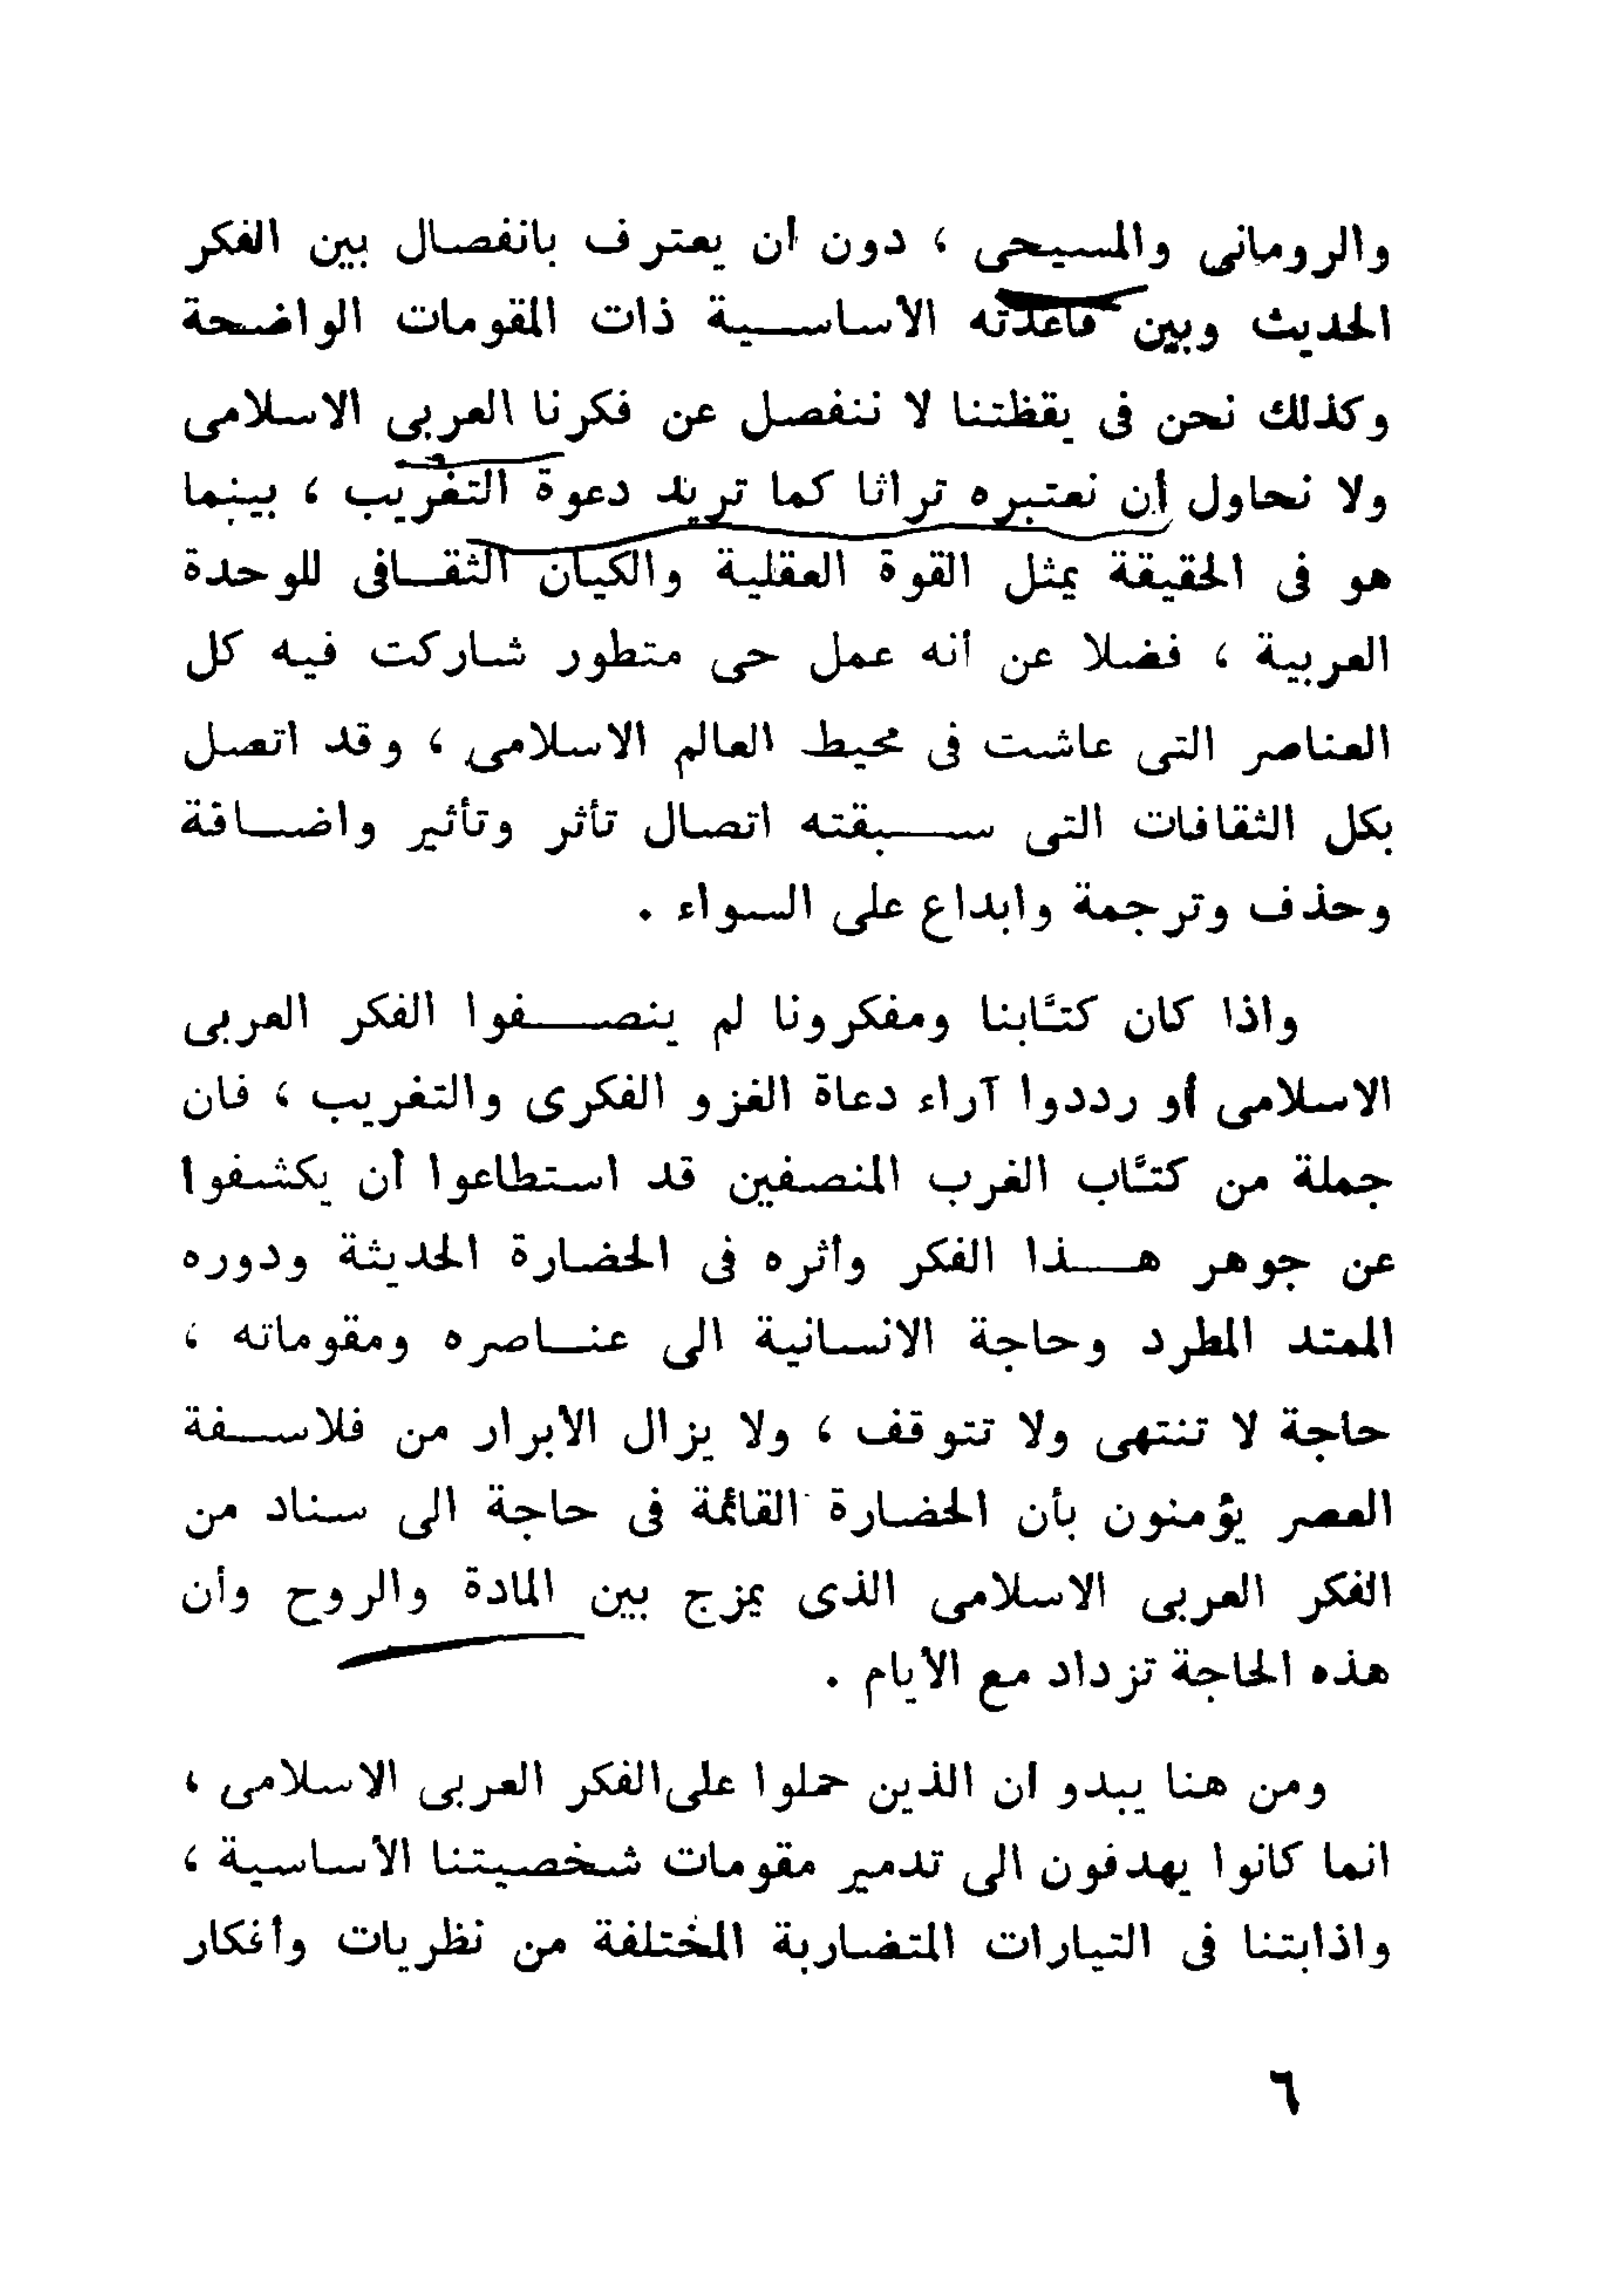 والرومانى والمسيحى ، دون ان يعترف بانفصال بين الفكر
الحديث وبين قاعدته الأساسية ذات المقومات الواضحة
وكذلك نحن فى يقظتنا لا ننفصل عن فكرنا العربى الاسلامى
ولا نحاول أن نعتبره تراثا كما تريد دعوة التغريب ، بينما
هو فى الحقيقة يمثل القوة العقلية والكيان الثقافى للوحدة
العربية ، فضلا عن أنه عمل حى متطور شاركت فيه كل
العناصر التى عاشت فى محيط العالم الاسلامى ، وقد اتصل
بكل الثقافات التى سبقته اتصال تأثر وتأثير واضافة
وحذف وترجمة وابداع على السواء .
واذا كان كتّابنا ومفكرونا لم ينصفوا الفكر العربى
الاسلامى أو رددوا آراء دعاة الغزو الفكرى والتغريب ، فان
جملة من كتّاب الغرب المنصفين قد استطاعوا أن يكشفوا
عن جوهر هذا الفكر وأثره فى الحضارة الحديثة ودوره
الممتد المطرد وحاجة الانسانية الى عناصره ومقوماته ،
حاجة لا تنتهى ولا تتوقف ، ولا يزال الأبرار من فلاسفة
العصر يؤمنون بأن الحضارة القائمة فى حاجة الى سناد من
الفكر العربى الاسلامى الذى يمزج بين المادة والروح وأن
هذه الحاجة تزداد مع الأيام .
ومن هنا يبدو ان الذين حملوا على الفكر العربى الاسلامى ،
انما كانوا يهدفون الى تدمير مقومات شخصيتنا الأساسية ،
واذابتنا فى التيارات المتضاربة المختلفة من نظريات وأفكار
٦